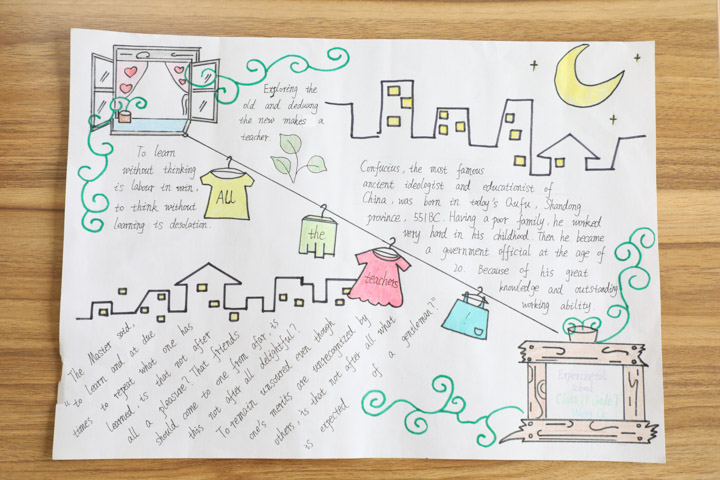 Exploring the
old and deduing
the new makes a
teacher.
To learn
without thinking
is labour in vain,
to think without
learning is desolation.
ALL
the
teachers
!
Confucius, the most famous
ancient ideologist and educationist of
China, was born in today's Qufu, Shandong
province, 551 BC. Having a poor family, he worked
very hard in his childhood. Then he became
a government official at the age of
20. Because of his great
knowledge and outstanding
working ability
The Master said,
"to learn and at due
times to repeat what one has
learned, is that not after
all a pleasure? That friends
should come to one from afar, is
this not after all delightful?
To remain unsoured even though
one's merits are unrecognized by
others, is that not after all what
is expected of a gentleman?"
Experimental
School